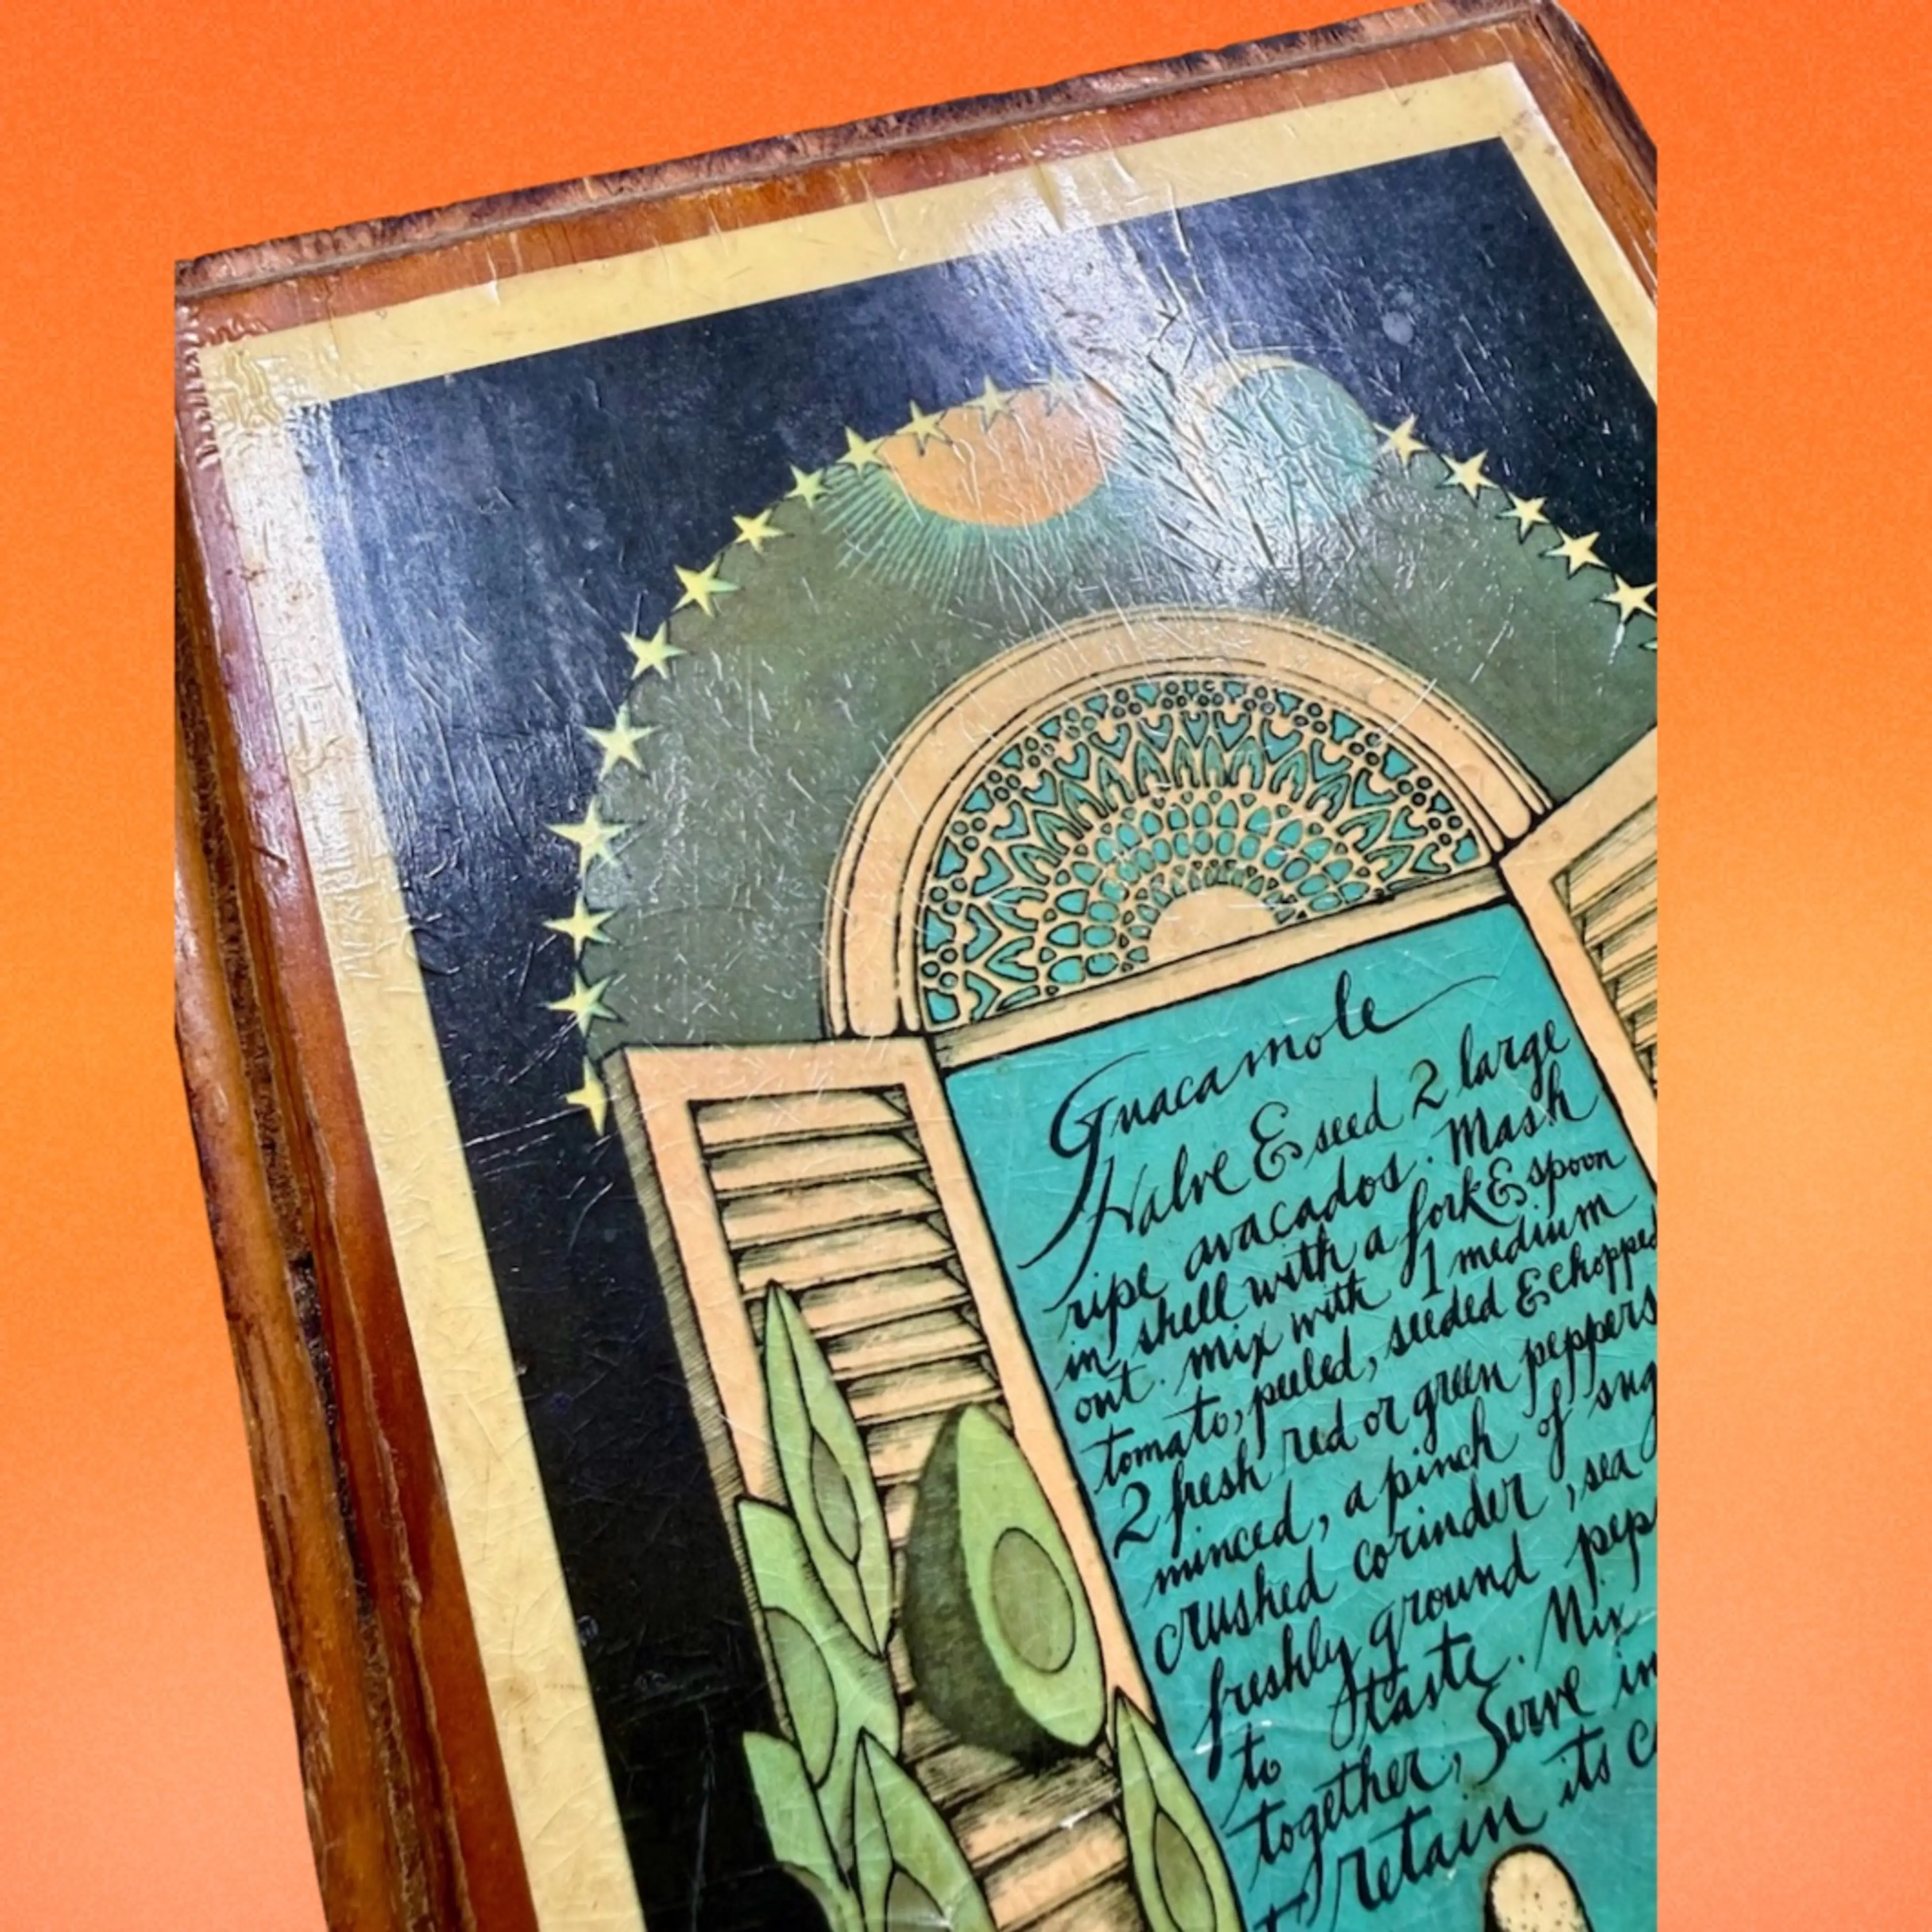 Guacamole
Halve & seed 2 large
ripe avacados. Mash
in shell with a fork & spoon
out. Mix with 1 medium
tomato, peeled, seeded & chopped
2 fresh red or green peppers
minced, a pinch of sug
crushed corinder, sea
freshly ground pep
to taste. Mix
together, Serve in
retain its c